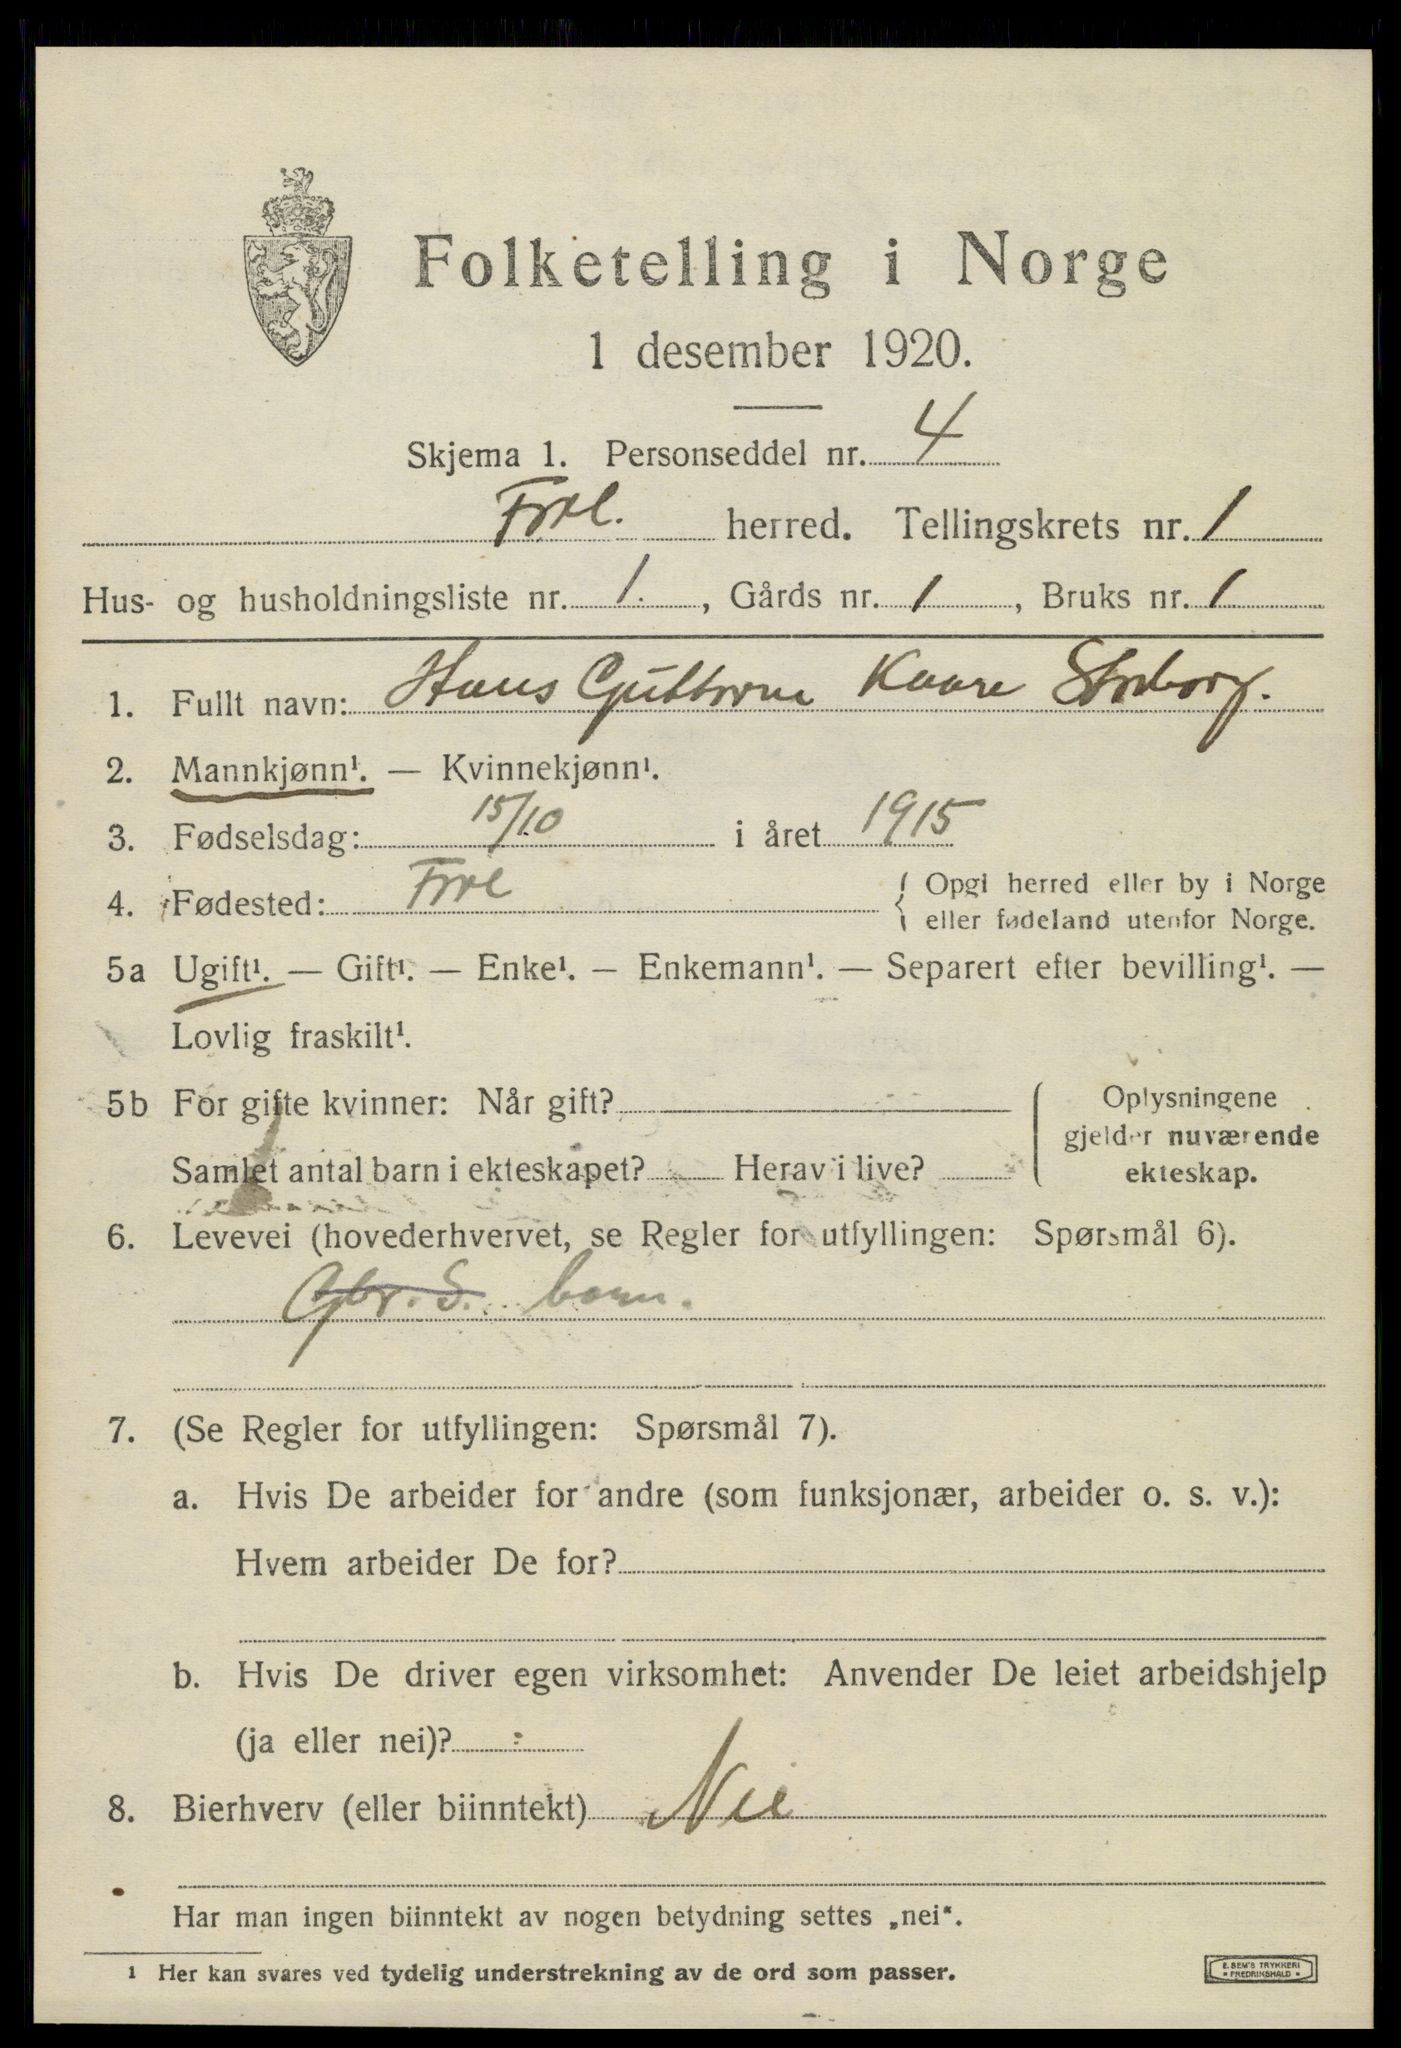 Folketelling i Norge
1 desember 1920.
Skjema 1. Personseddel nr. 4
Frol. herred. Tellingskrets nr. 1
Hus- og husholdningsliste nr. 1. , Gårds nr. 1 , Bruks nr. 1
1. Fullt navn: Hans Guttorm Kaare Storborg.
2. Mannkjønn¹. — Kvinnekjønn¹.
3. Fødselsdag: 15/10 i året 1915
4. Fødested: Frol { Opgi herred eller by i Norge
eller fødeland utenfor Norge.
5a Ugift¹. — Gift¹. — Enke¹. — Enkemann¹. — Separert efter bevilling¹. —
Lovlig fraskilt¹.
5b For gifte kvinner: Når gift?
Samlet antal barn i ekteskapet? Herav i live?
Oplysningene
gjelder nuværende
ekteskap.
6. Levevei (hovederhvervet, se Regler for utfyllingen: Spørsmål 6).
Gbr. S. barn.
7. (Se Regler for utfyllingen: Spørsmål 7).
a. Hvis De arbeider for andre (som funksjonær, arbeider o. s. v.):
Hvem arbeider De for?
b. Hvis De driver egen virksomhet: Anvender De leiet arbeidshjelp
(ja eller nei)?
8. Bierhverv (eller biinntekt) Nei
Har man ingen biinntekt av nogen betydning settes „nei“.
1 Her kan svares ved tydelig understrekning av de ord som passer.
E. SEM'S TRYKKERI
• FREDRIKSHALD •